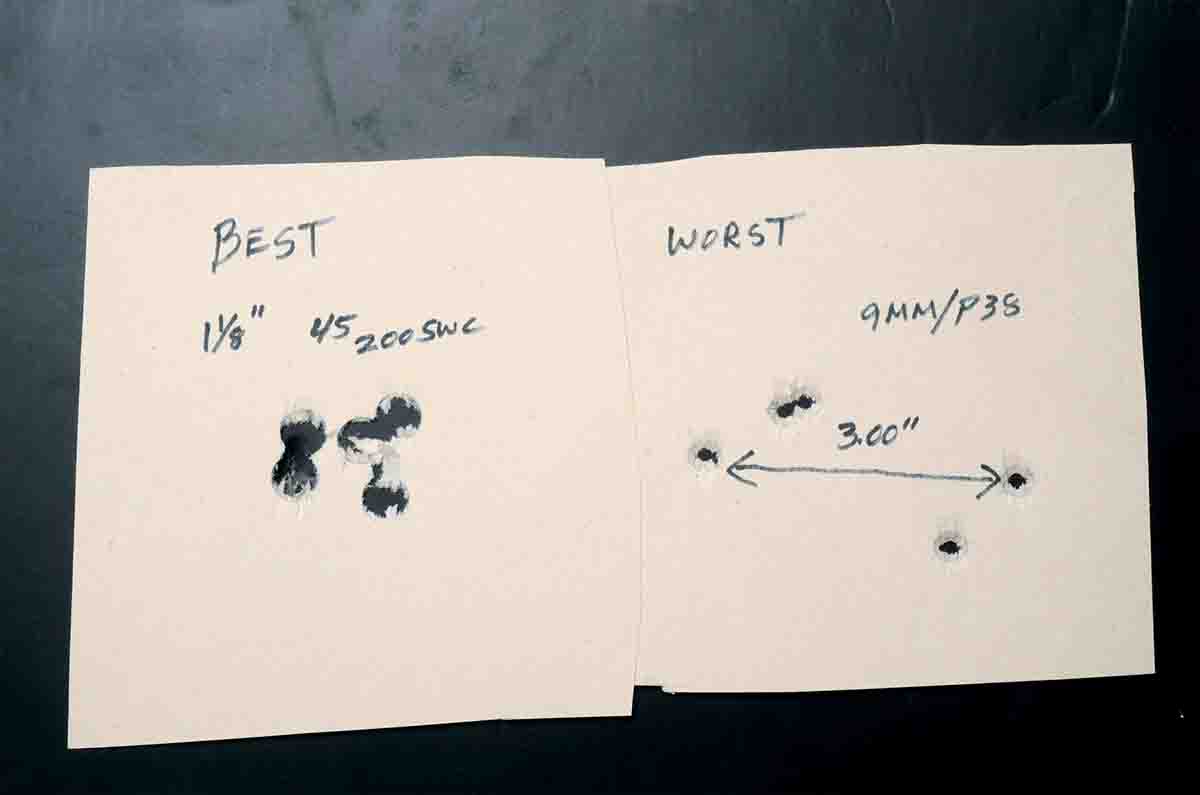 BEST
1 1/8" 45 200 SWC
WORST
9MM/P38
3.00"